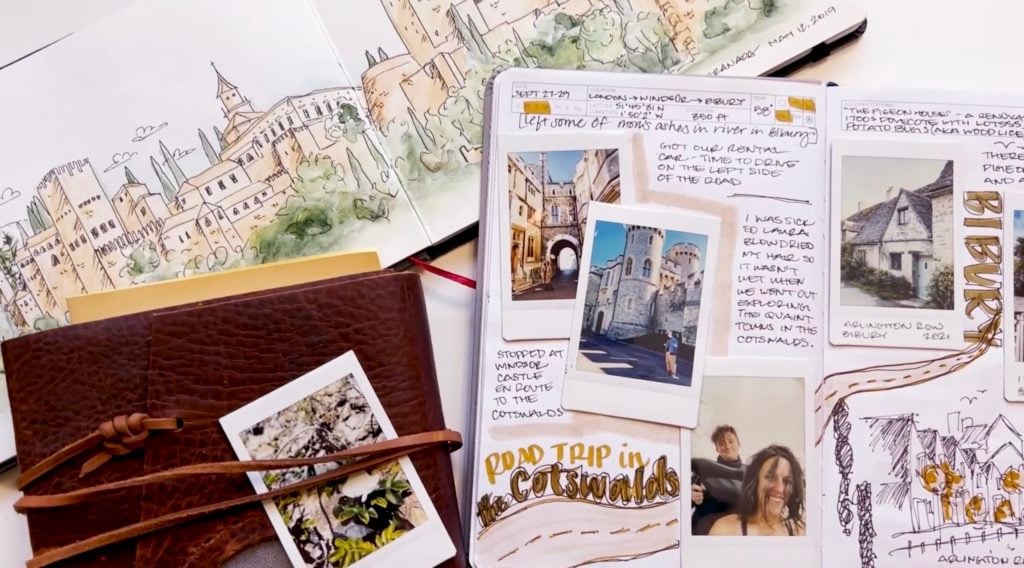 GRANADA MAY 12, 2019
DATE
SEPT 27-29
LOCATION
LONDON → WINDSOR → BIBURY
51°45'31 N
1°50'2" W
350 FT
TEMP
58°
[left some of mom's ashes in river in Bibury]
GOT OUR RENTAL
CAR - TIME TO DRIVE
ON THE LEFT SIDE
OF THE ROAD
I WAS SICK
SO LAURA
BLOW DRIED
MY HAIR SO
IT WASN'T
WET WHEN
WE WENT OUT
EXPLORING
THE QUAINT
TOWNS IN THE
COTSWALDS.
STOPPED AT
WINDSOR
CASTLE
EN ROUTE
TO THE
COTSWALDS
ROAD TRIP in
the Cotswalds
"THE PIGEON HOUSE" - A RENOVA
1700s DOVECOTE WITH LOTS OF
POTATO BUGS (AKA WOOD LICE
THERE
PIGEO
AND A
BIBURY
ARLINGTON ROW
BIBURY 2021
ARLINGTON R